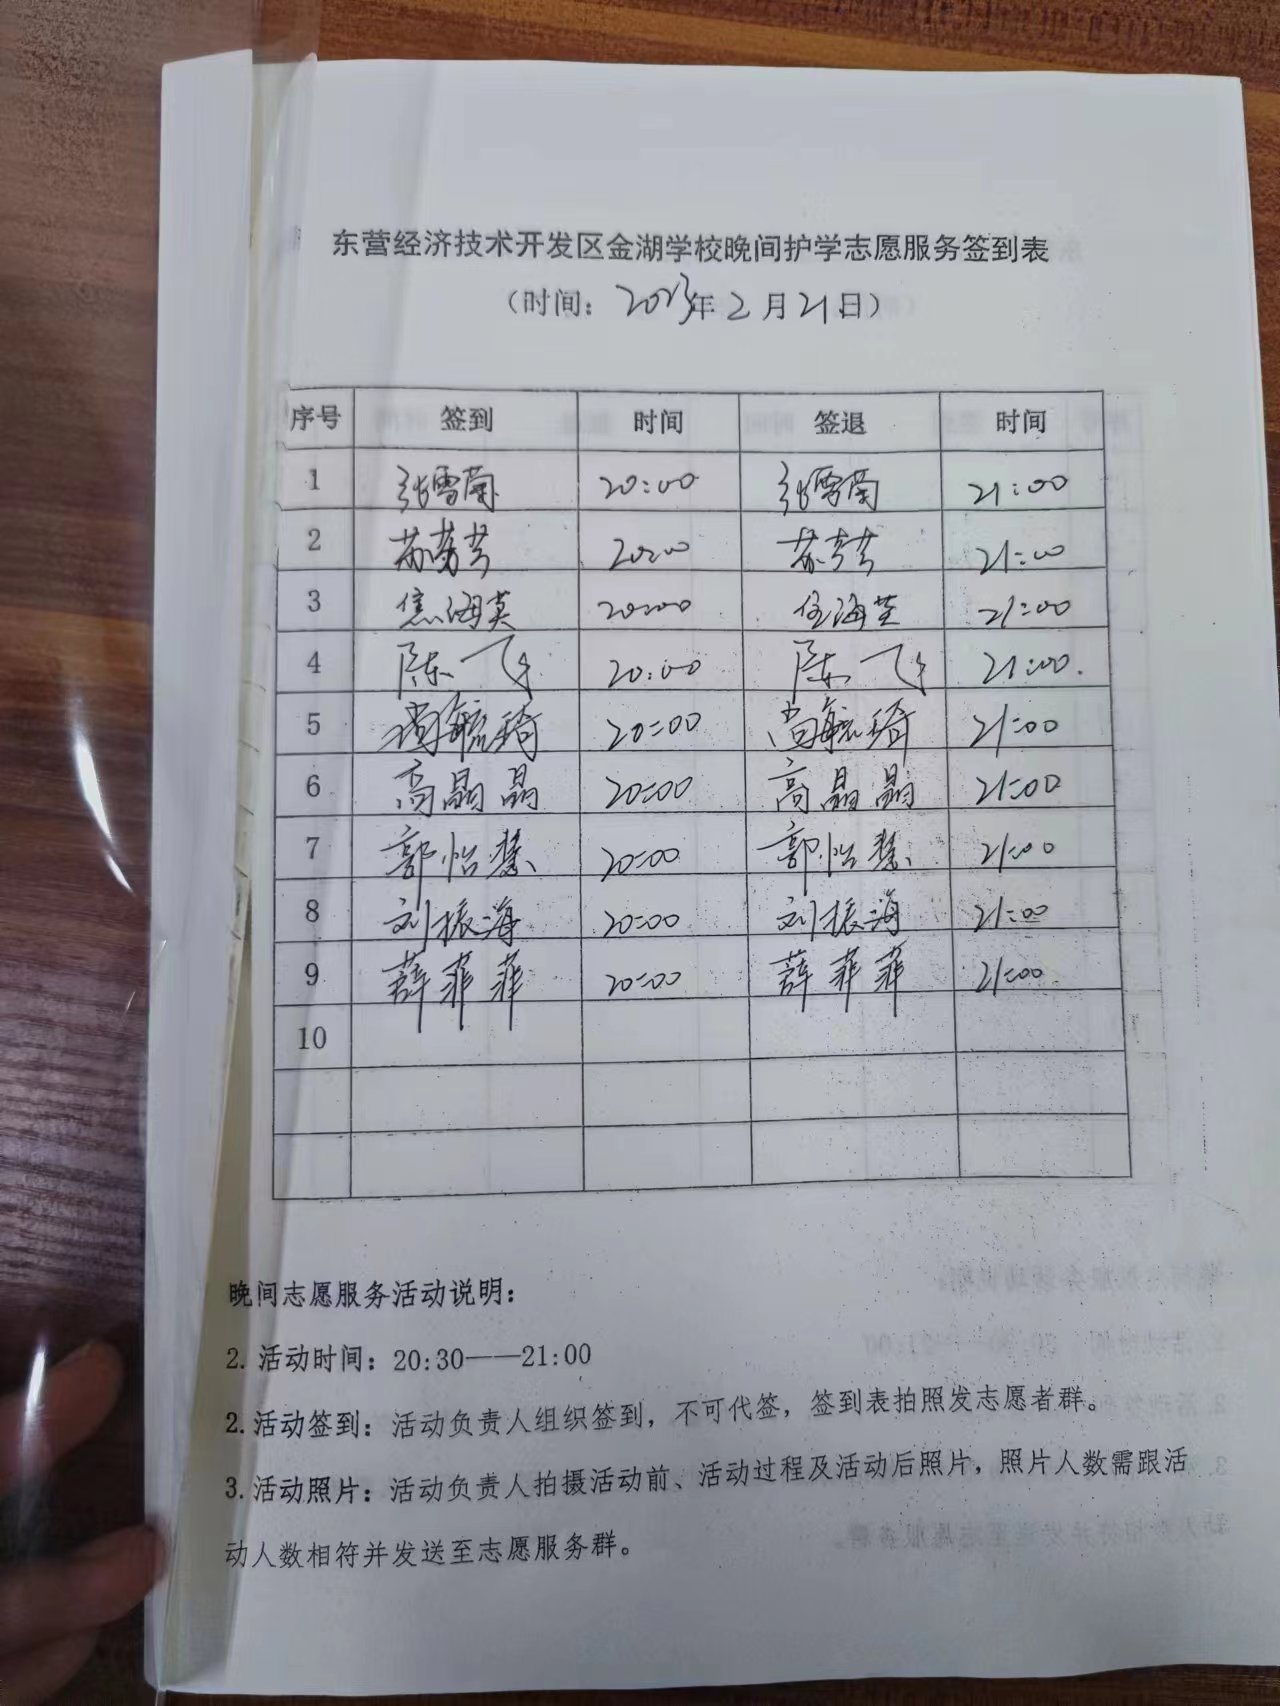 东营经济技术开发区金湖学校晚间护学志愿服务签到表
（时间：2023年2月21日）
序号 签到 时间 签退 时间
1 张雪菊 20:00 张雪菊 21:00
2 苏芳芳 20:00 苏芳芳 21:00
3 焦海英 20:00 焦海英 21:00
4 陈飞 20:00 陈飞 21:00
5 尚毓琦 20:00 尚毓琦 21:00
6 高晶晶 20:00 高晶晶 21:00
7 郭怡慧 20:00 郭怡慧 21:00
8 刘振海 20:00 刘振海 21:00
9 薛菲菲 20:00 薛菲菲 21:00
10
晚间志愿服务活动说明：
2. 活动时间：20:30——21:00
2. 活动签到：活动负责人组织签到，不可代签，签到表拍照发志愿者群。
3. 活动照片：活动负责人拍摄活动前、活动过程及活动后照片，照片人数需跟活
动人数相符并发送至志愿服务群。